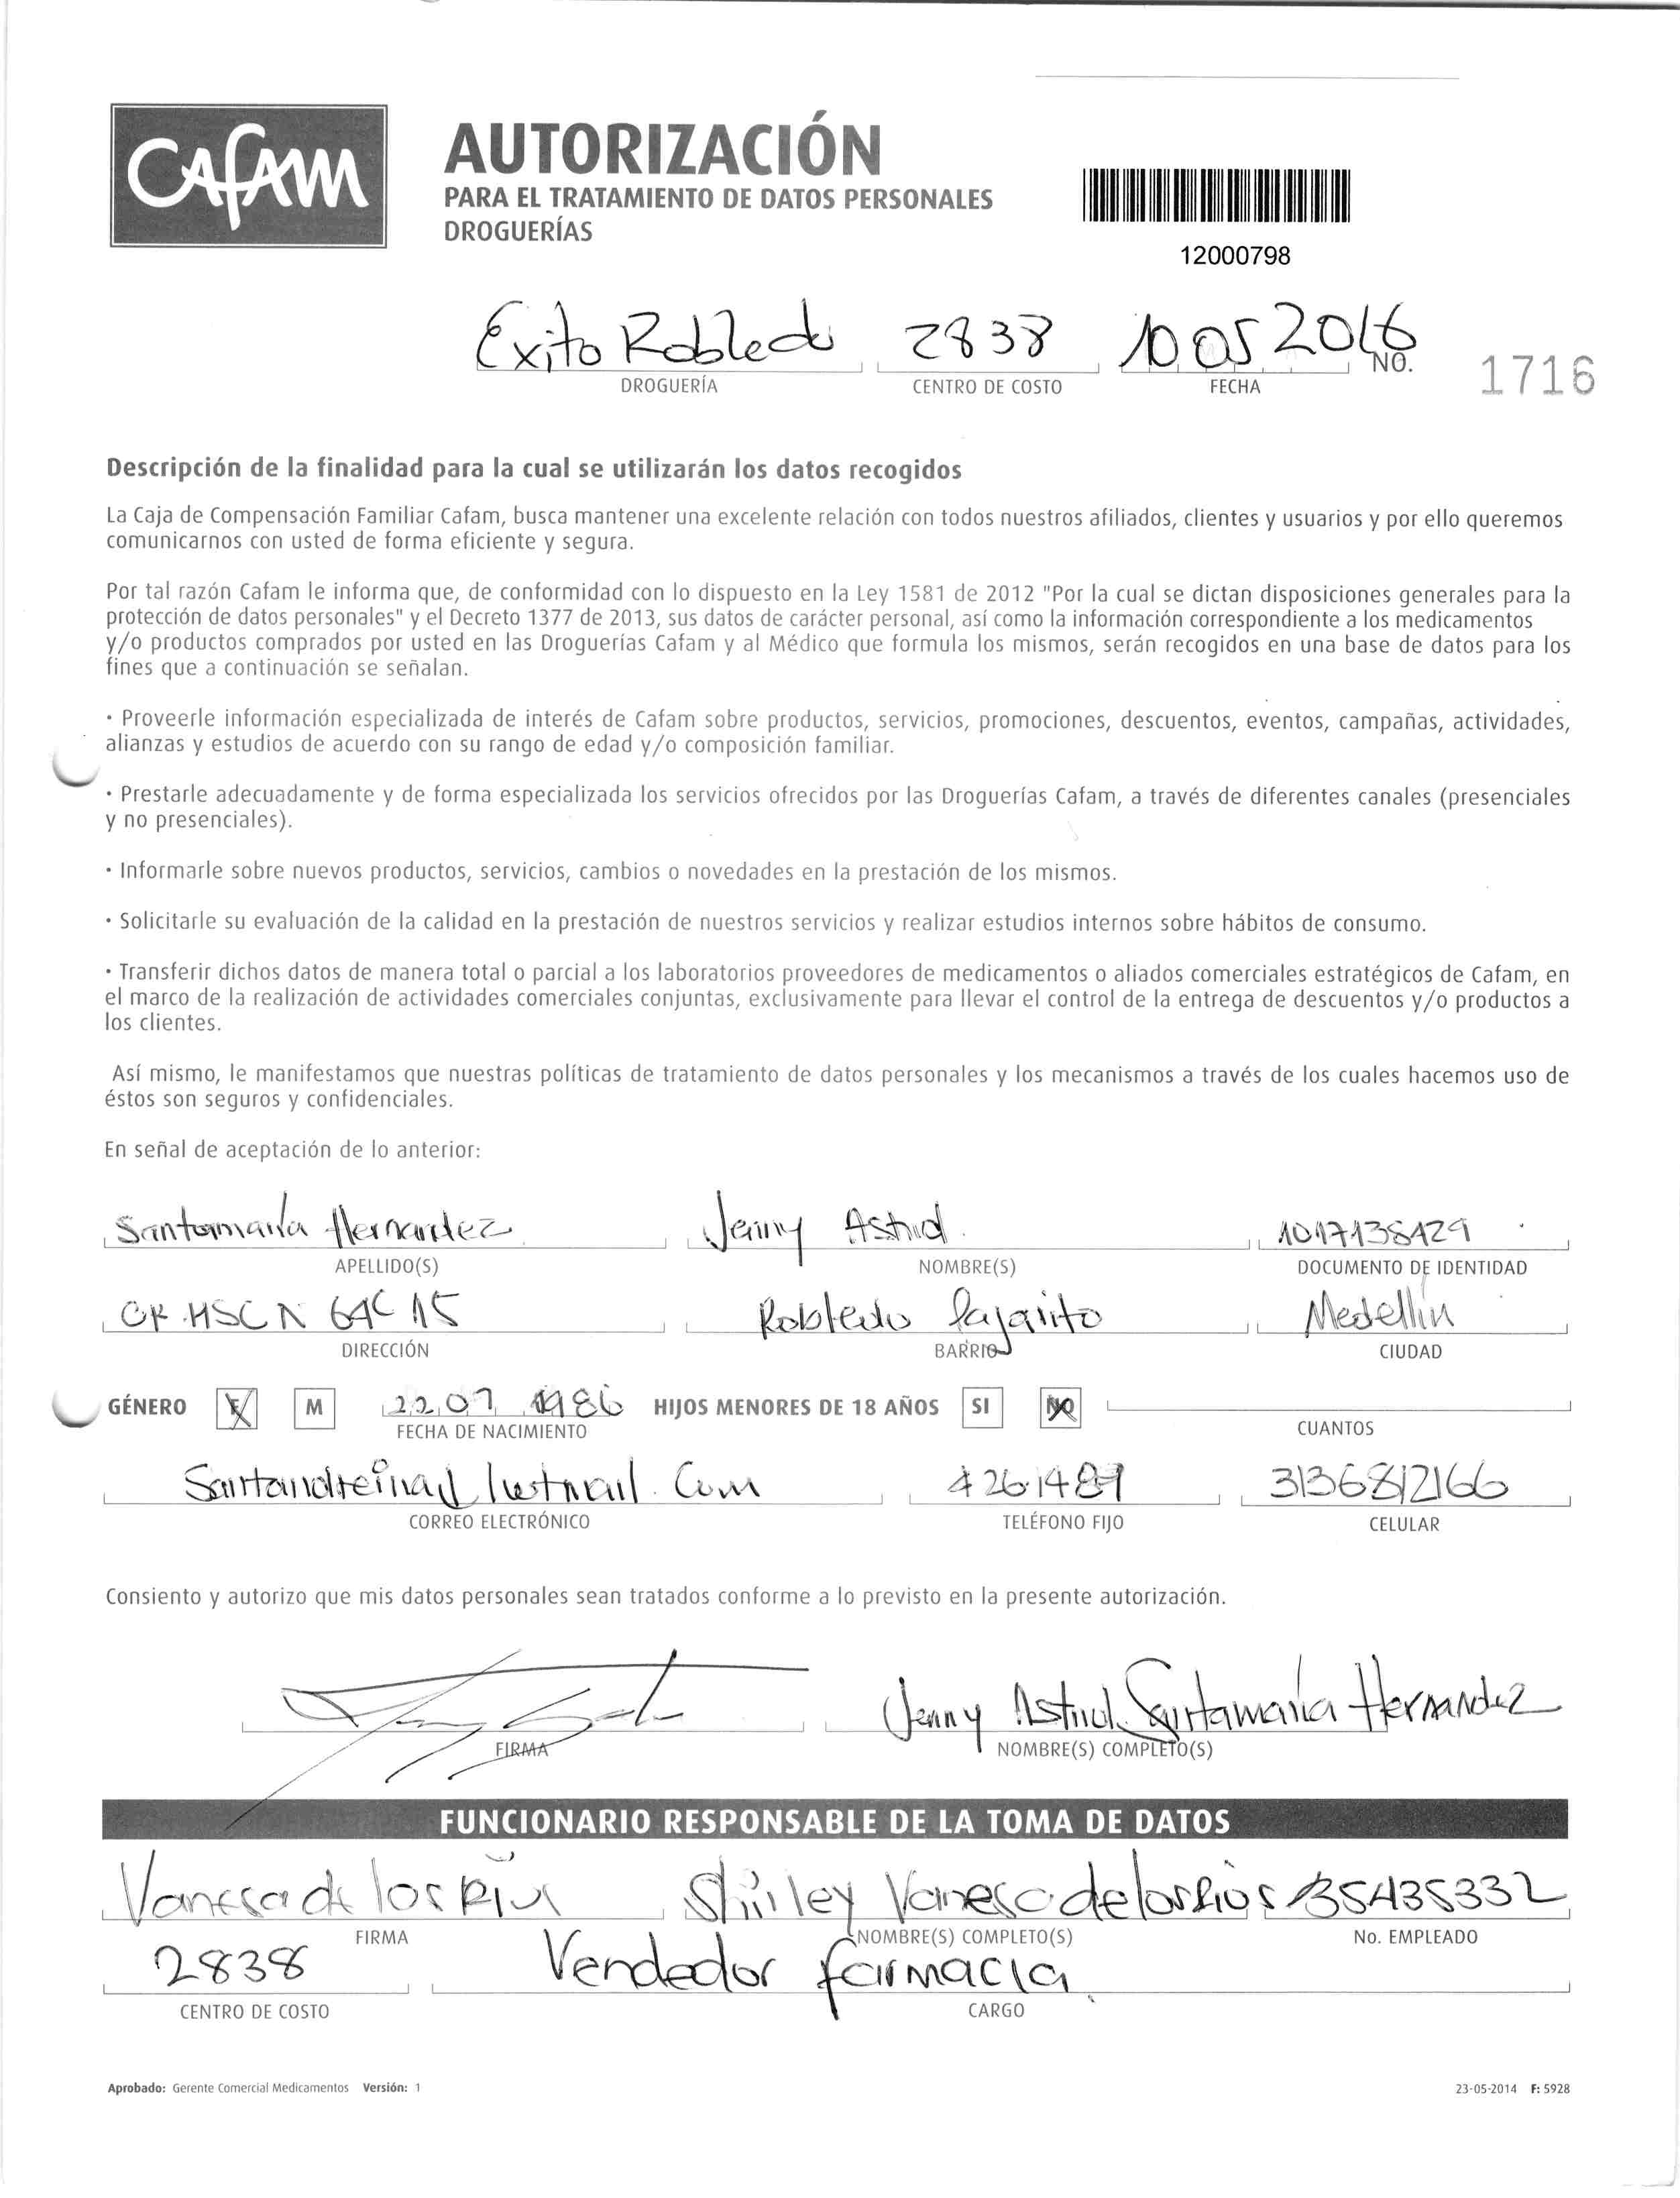 Cafam
AUTORIZACIÓN
PARA EL TRATAMIENTO DE DATOS PERSONALES
DROGUERÍAS
12000798
Exito Robledo 2838 10 05 2016
DROGUERÍA CENTRO DE COSTO FECHA NO. 1716
Descripción de la finalidad para la cual se utilizarán los datos recogidos
La Caja de Compensación Familiar Cafam, busca mantener una excelente relación con todos nuestros afiliados, clientes y usuarios y por ello queremos
comunicarnos con usted de forma eficiente y segura.
Por tal razón Cafam le informa que, de conformidad con lo dispuesto en la Ley 1581 de 2012 "Por la cual se dictan disposiciones generales para la
protección de datos personales" y el Decreto 1377 de 2013, sus datos de carácter personal, así como la información correspondiente a los medicamentos
y/o productos comprados por usted en las Droguerías Cafam y al Médico que formula los mismos, serán recogidos en una base de datos para los
fines que a continuación se señalan.
· Proveerle información especializada de interés de Cafam sobre productos, servicios, promociones, descuentos, eventos, campañas, actividades,
alianzas y estudios de acuerdo con su rango de edad y/o composición familiar.
· Prestarle adecuadamente y de forma especializada los servicios ofrecidos por las Droguerías Cafam, a través de diferentes canales (presenciales
y no presenciales).
· Informarle sobre nuevos productos, servicios, cambios o novedades en la prestación de los mismos.
· Solicitarle su evaluación de la calidad en la prestación de nuestros servicios y realizar estudios internos sobre hábitos de consumo.
· Transferir dichos datos de manera total o parcial a los laboratorios proveedores de medicamentos o aliados comerciales estratégicos de Cafam, en
el marco de la realización de actividades comerciales conjuntas, exclusivamente para llevar el control de la entrega de descuentos y/o productos a
los clientes.
Así mismo, le manifestamos que nuestras políticas de tratamiento de datos personales y los mecanismos a través de los cuales hacemos uso de
éstos son seguros y confidenciales.
En señal de aceptación de lo anterior:
Santamaría Hernandez Jenny Astrid 1017138429
APELLIDO(S) NOMBRE(S) DOCUMENTO DE IDENTIDAD
64C 115 Robledo Pajarito Medellin
DIRECCIÓN BARRIO CIUDAD
GÉNERO M 22 07 1986 HIJOS MENORES DE 18 AÑOS SI NO
FECHA DE NACIMIENTO CUANTOS
4261487 3136812166
CORREO ELECTRÓNICO TELÉFONO FIJO CELULAR
Consiento y autorizo que mis datos personales sean tratados conforme a lo previsto en la presente autorización.
Jenny Astrid Santamaría Hernandez
FIRMA NOMBRE(S) COMPLETO(S)
FUNCIONARIO RESPONSABLE DE LA TOMA DE DATOS
Vanessa de los Rios Shirley Vanesa de los Rios 35435332
FIRMA NOMBRE(S) COMPLETO(S) No. EMPLEADO
2838 Vendedor farmacia
CENTRO DE COSTO CARGO
Aprobado: Gerente Comercial Medicamentos Versión: 1 23-05-2014 F: 5928